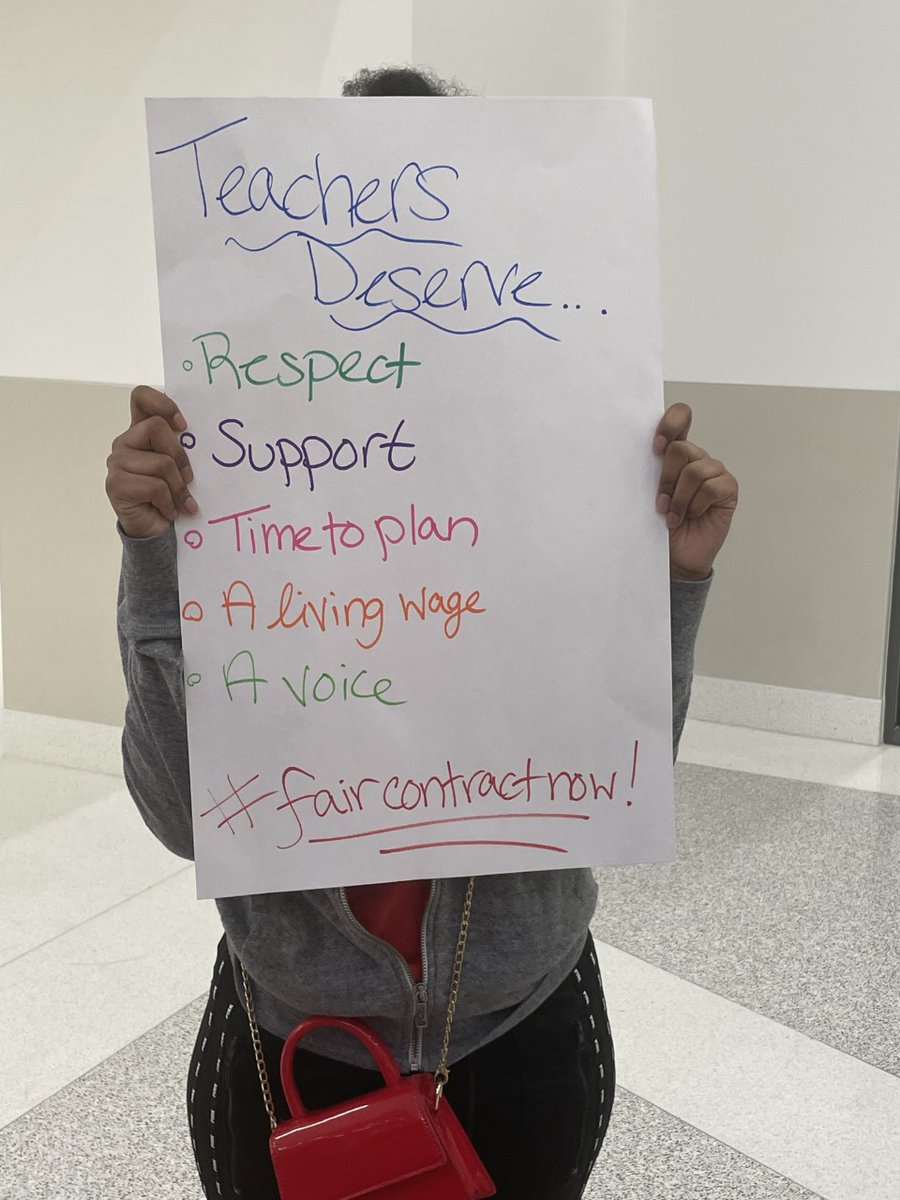 Teachers
Deserve...
Respect
Support
Time to plan
A living wage
A voice
#faircontractnow!